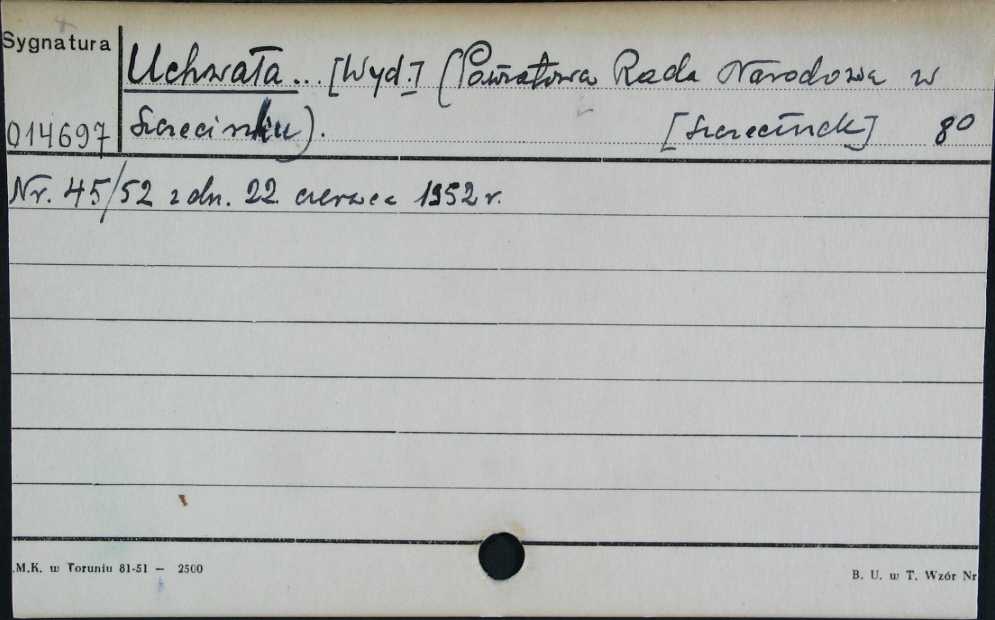 Sygnatura
Uchwała... [Wyd.] (Powiatowa Rada Narodowa w
014697 Szczecinku). [Szczecinek] 8⁰
Nr. 45/52 z dn. 22 czerwca 1952 r.
.M.K. w Toruniu 81-51 — 2500
B. U. w T. Wzór Nr